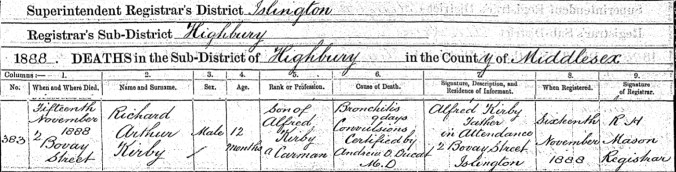 Superintendent Registrar's District Islington
Registrar's Sub-District Highbury
1888. DEATHS in the Sub-District of Highbury in the County of Middlesex
Columns:— 1. 2. 3. 4. 5. 6. 7. 8. 9.
No. When and Where Died. Name and Surname. Sex. Age. Rank or Profession. Cause of Death. Signature, Description, and Residence of Informant. When Registered. Signature of Registrar.
383
Fifteenth
November
1888
2
Bovay
Street
Richard
Arthur
Kirby
Male
12
months
Son of
Alfred
Kirby
a Carman
Bronchitis
9 days
Convulsions
Certified by
Andrew D. Ducat
M.D
Alfred Kirby
Father
in Attendance
2 Bovay Street
Islington
Sixteenth
November
1888
R H
Mason
Registrar